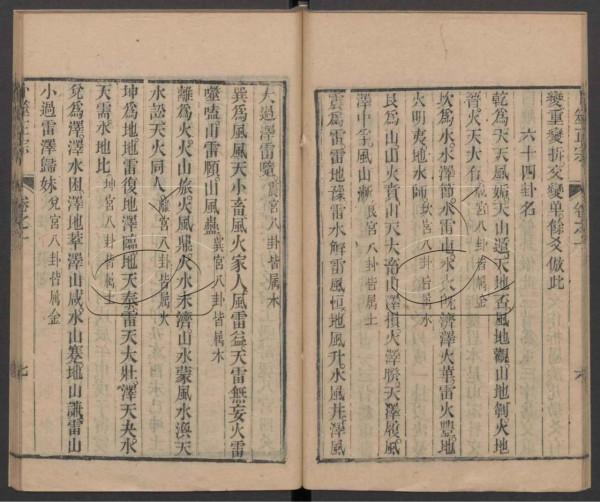 變重變拆交變單餘爻倣此
六十四卦名
乾爲天天風姤天山遯天地否風地觀山地剝火地
晉火天大有乾宮八卦皆属金
坎爲水水澤節水雷屯水火既濟澤火革雷火豐地
火明夷地水師坎宮八卦皆属水
艮爲山山火賁山天大畜山澤損火澤睽天澤履風
澤中孚風山漸艮宮八卦皆属土
震爲雷雷地豫雷水解雷風恒地風升水風井澤風
大過澤雷隨震宮八卦皆属木
巽爲風風天小畜風火家人風雷益天雷無妄火雷
噬嗑山雷頤山風蠱巽宮八卦皆属木
離爲火火山旅火風鼎火水未濟山水蒙風水渙天
水訟天火同人離宮八卦皆属火
坤爲地地雷復地澤臨地天泰雷天大壯澤天夬水
天需水地比坤宮八卦皆属土
兌爲澤澤水困澤地萃澤山咸水山蹇地山謙雷山
小過雷澤歸妹兌宮八卦皆属金
卜筮正宗
卷之一
六
七